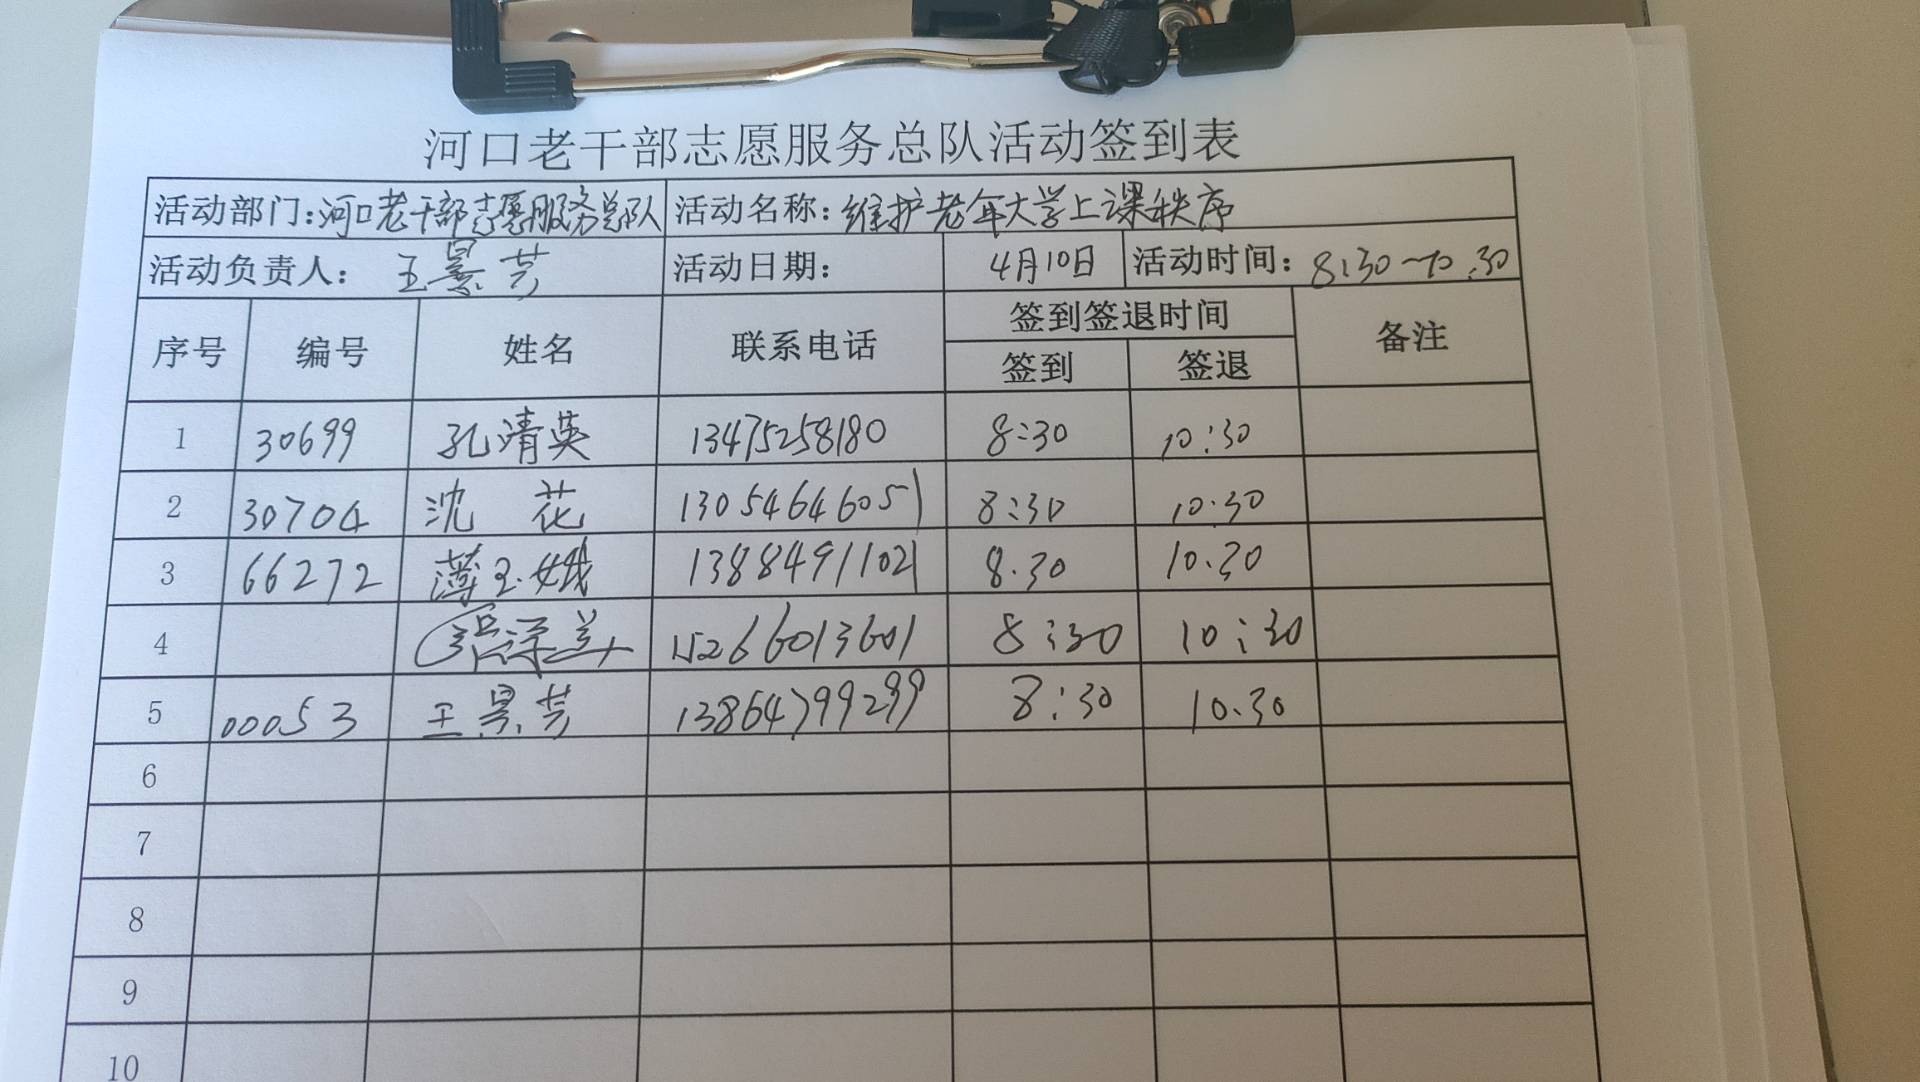 河口老干部志愿服务总队活动签到表
活动部门:河口老干部志愿服务总队 活动名称:维护老年大学上课秩序
活动负责人: 王景芳 活动日期: 4月10日 活动时间: 8:30~10:30
序号 编号 姓名 联系电话 签到签退时间 备注
签到 签退
1 30699 孔清英 13475258180 8:30 10:30
2 30704 沈花 13054646051 8:30 10:30
3 66272 薄玉娥 13884911021 8.30 10.30
4 15266013601 8:30 10:30
5 00053 王景芳 13864799299 8:30 10.30
6
7
8
9
10